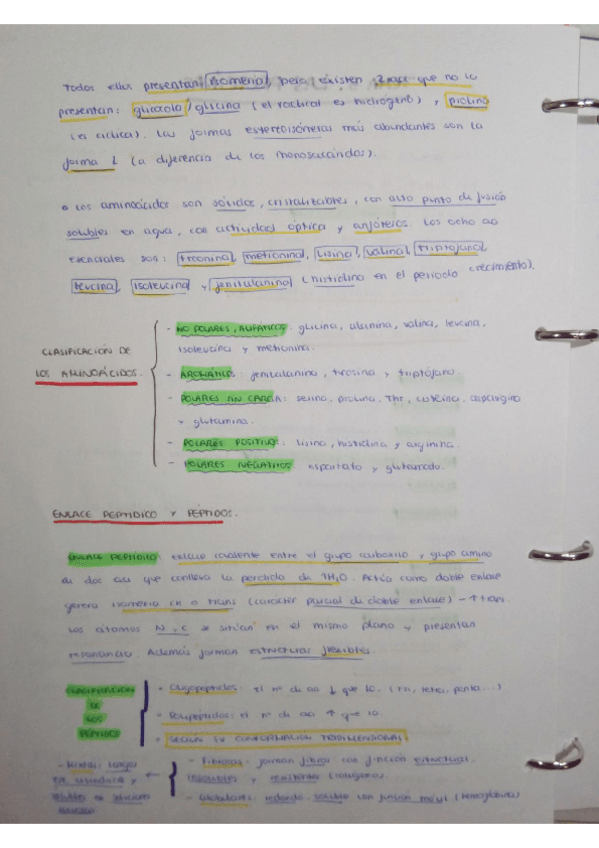 Todos ellos presentan isomería, pero existen 2 aa que no lo
presentan: glicocola / glicina (el radical es hidrógeno) y prolina
(es cíclica). Las formas estereoisómeras más abundantes son la
forma L (a diferencia de los monosacáridos).
• Los aminoácidos son sólidos, cristalizables, con alto punto de fusión
solubles en agua, con actividad óptica y anfóteros. Los ocho aa
esenciales son: treonina, metionina, lisina, valina, triptófano,
leucina, isoleucina y fenilalanina (histidina en el periodo crecimiento).
CLASIFICACIÓN DE
LOS AMINOÁCIDOS.
- NO POLARES, ALIFÁTICOS: glicina, alanina, valina, leucina,
isoleucina y metionina.
- AROMÁTICOS: fenilalanina, tirosina y triptófano.
- POLARES SIN CARGA: serina, prolina, Thr, cisteína, asparagina
y glutamina.
- POLARES POSITIVOS: lisina, histidina y arginina.
- POLARES NEGATIVOS: aspartato y glutamato.
ENLACE PEPTÍDICO Y PÉPTIDOS.
ENLACE PEPTÍDICO: enlace covalente entre el grupo carboxilo y grupo amino
de dos aa que conlleva la pérdida de 1H2O. Actúa como doble enlace
genera isomería cis o trans (carácter parcial de doble enlace) → ↑ trans.
Los átomos N y C se sitúan en el mismo plano y presentan
resonancia. Además forman estructuras flexibles.
CLASIFICACIÓN
DE
LOS
PÉPTIDOS
• Oligopéptidos: el nº de aa ↓ que 10. (tri, tetra, penta...)
• Polipéptidos: el nº de aa ↑ que 10
• SEGÚN SU CONFORMACIÓN TRIDIMENSIONAL
- Fibrosas: forman fibras con función estructural.
insolubles y resistentes (colágeno).
- Globulares: redonda. soluble con función móvil (hemoglobina)
- Mixtas: largas
en secundaria y ←
solubles en